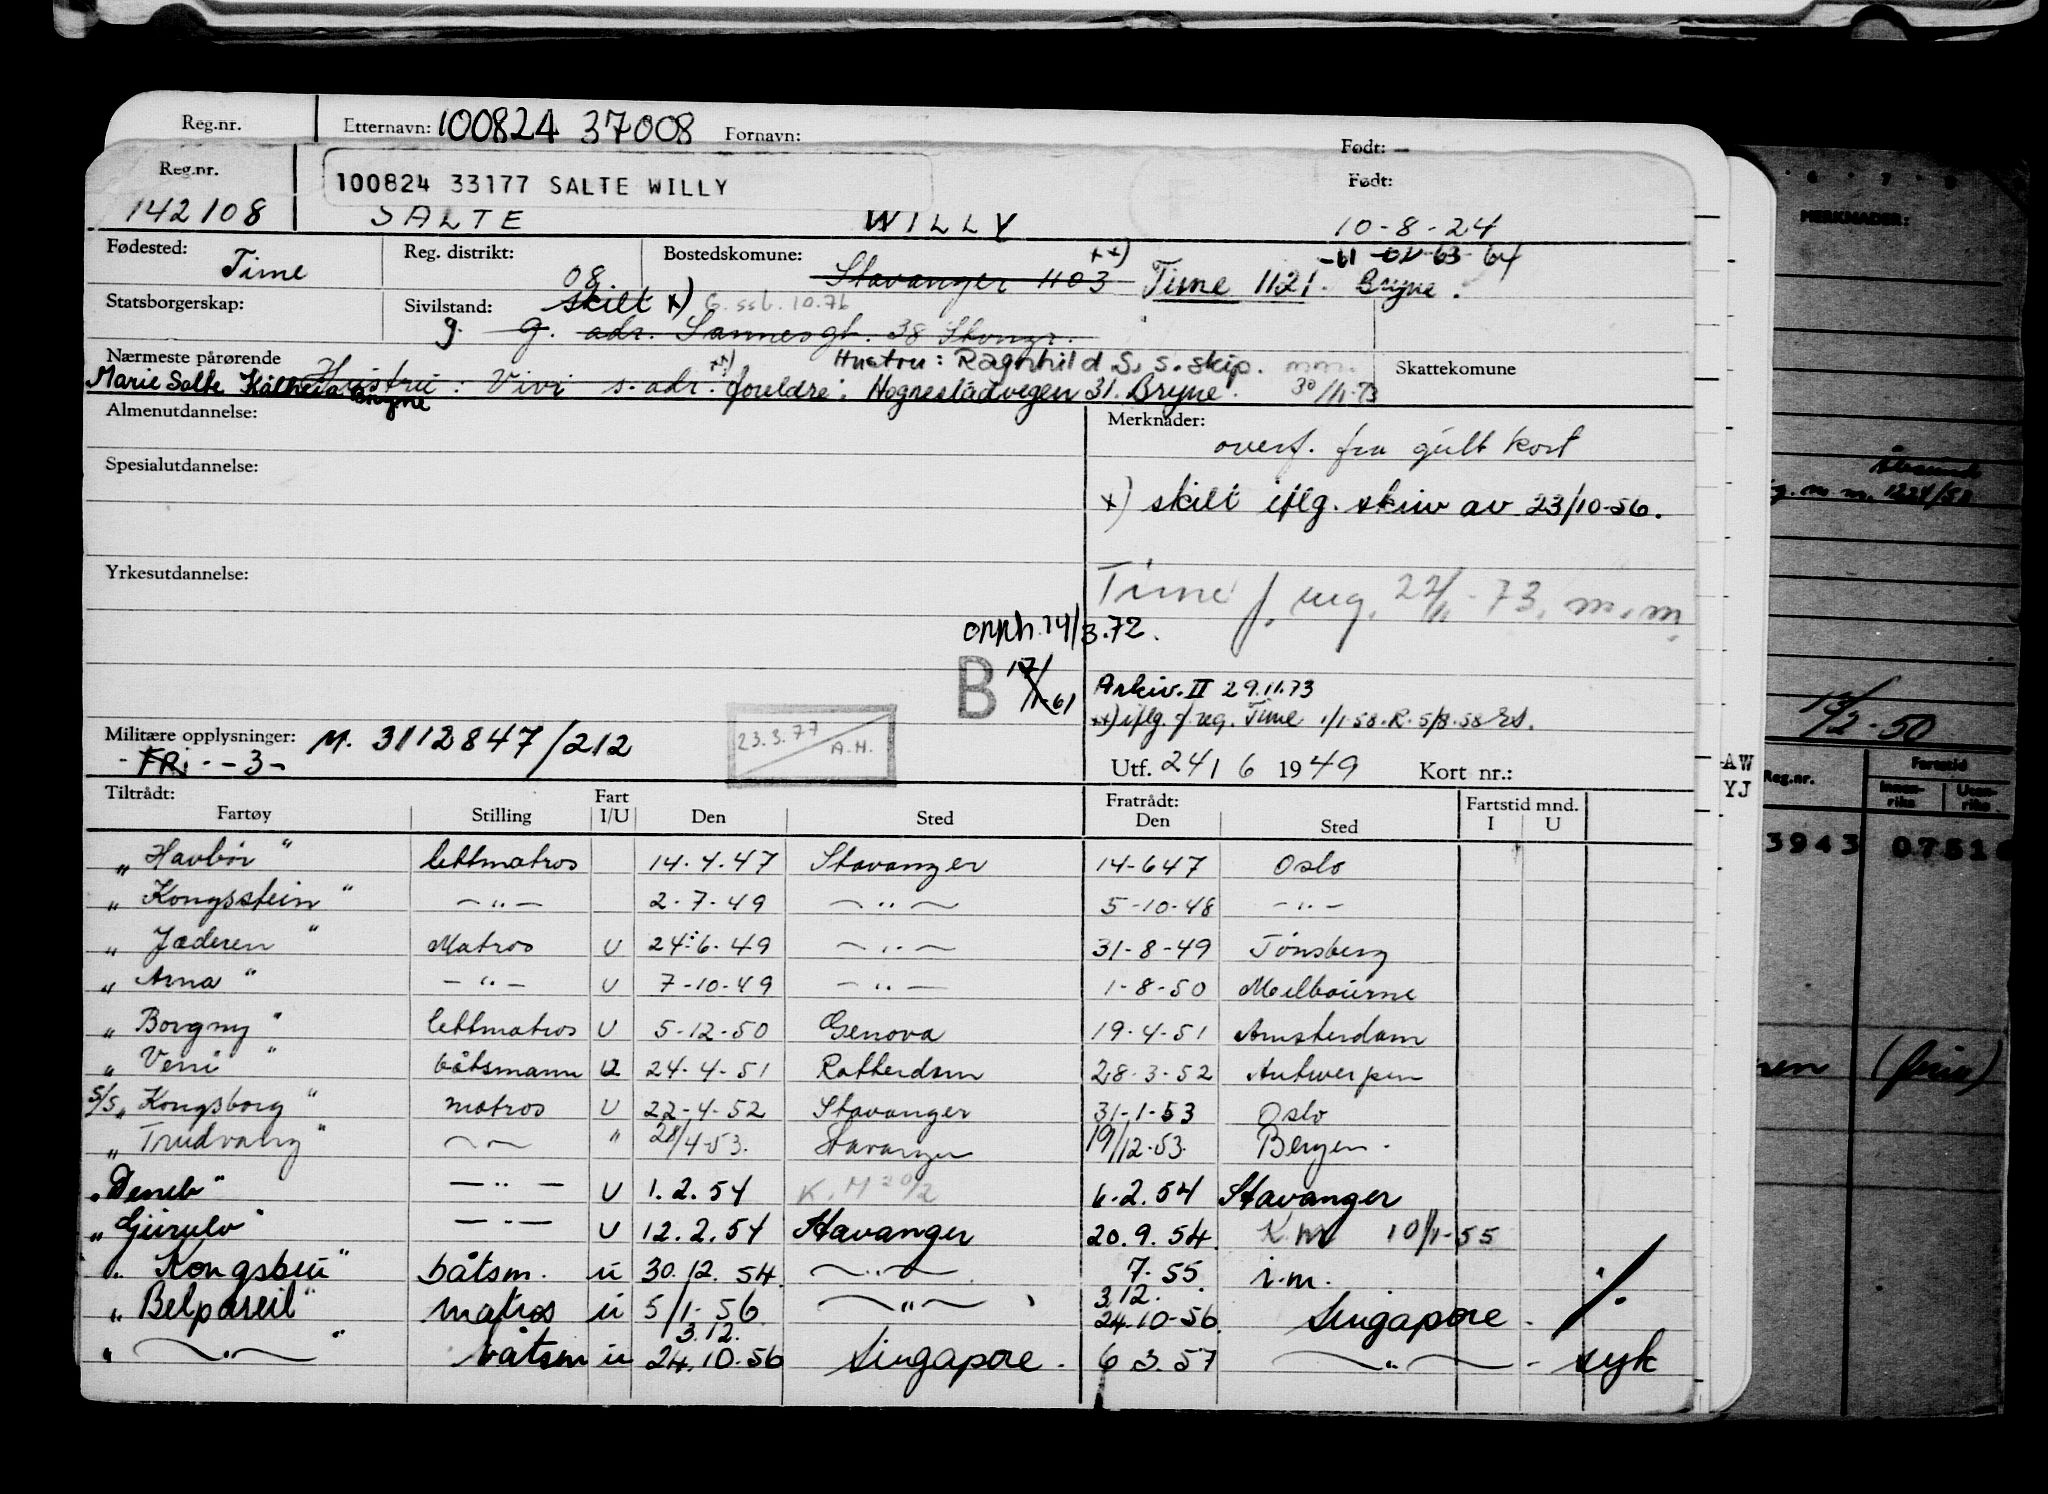 Reg.nr. Etternavn: 100824 37008 Fornavn: Født: –
Reg.nr. 100824 33177 SALTE WILLY Født:
142108 SALTE WILLY 10-8-24
Fødested: Time Reg. distrikt: 08 Bostedskomune: Stavanger 1103 xx) Time 1121. Bryne.
-61 -02-63-64
Statsborgerskap: Sivilstand: skilt x) G. ssb. 10.76
g. g. adr. Sannesgt. 38 Stvngr.
Nærmeste pårørende Hustru: Ragnhild S. s. skip. m.m. Skattekomune
Marie Salte Bryne Hustru: Vivi s. adr. xx) foreldre: Hognestadvegen 31. Bryne. 30/11-73
Almenutdannelse: Merknader:
overf. fra gult kort
Spesialutdannelse:
x) skilt iflg. skriv av 23/10-56.
Yrkesutdannelse:
Time f. reg. 22/11-73. m.m.
opph. 14/3.72.
B 17/1-61
Arkiv. II 29.11.73
xx) iflg. f reg. Time 1/1-58. R. 5/8-58
Militære opplysninger: M. 3112847/212
-FRi- -3-
23.3.77 A.H.
Utf. 24/6 1949 Kort nr.:
Tiltrådt: Fart Fratrådt: Fartstid mnd.
Fartøy Stilling I/U Den Sted Den Sted I U
„ Havbör " lettmatros 14.4.47 Stavanger 14-647 Oslo
„ Kongsstein " —„— 2-7-49 —„— 5-10-48 —„—
„ Jæderen " Matros U 24-6-49 —„— 31-8-49 Tønsberg
„ Arna " —„— U 7-10-49 —„— 1-8-50 Melbourne
„ Borgny " lettmatros U 5-12-50 Genova 19-4-51 Amsterdam
„ Veni " båtsmann U 24-4-51 Rotterdam 28-3-52 Antwerpen
S/S „ Kongsborg " matros U 22-4-52 Stavanger 31-1-53 Oslo
„ Trudvang " —„— " 28/4-53. Stavanger 19/12-53. Bergen.
„ Deneb " —„— U 1.2.54 K.M 20/2 6.2.54 Stavanger
„ " —„— U 12.2.54 Stavanger 20.9.54. K.M 10/1-55
„ " båtsm. u 30.12.54. —„— 7-55. i.m.
„ Belpareil " matros u 5/1-56 —„— 3.12. 24.10-56. Singapore. ./.
„ —„— " båtsm u 3.12. 24.10-56 Singapore. 6 3.57 —„— - syk
MERKNADER:
1224/51
13/2-50
AW
YJ
Reg.nr. Fartstid
Innenriks Utenriks
3943 0751